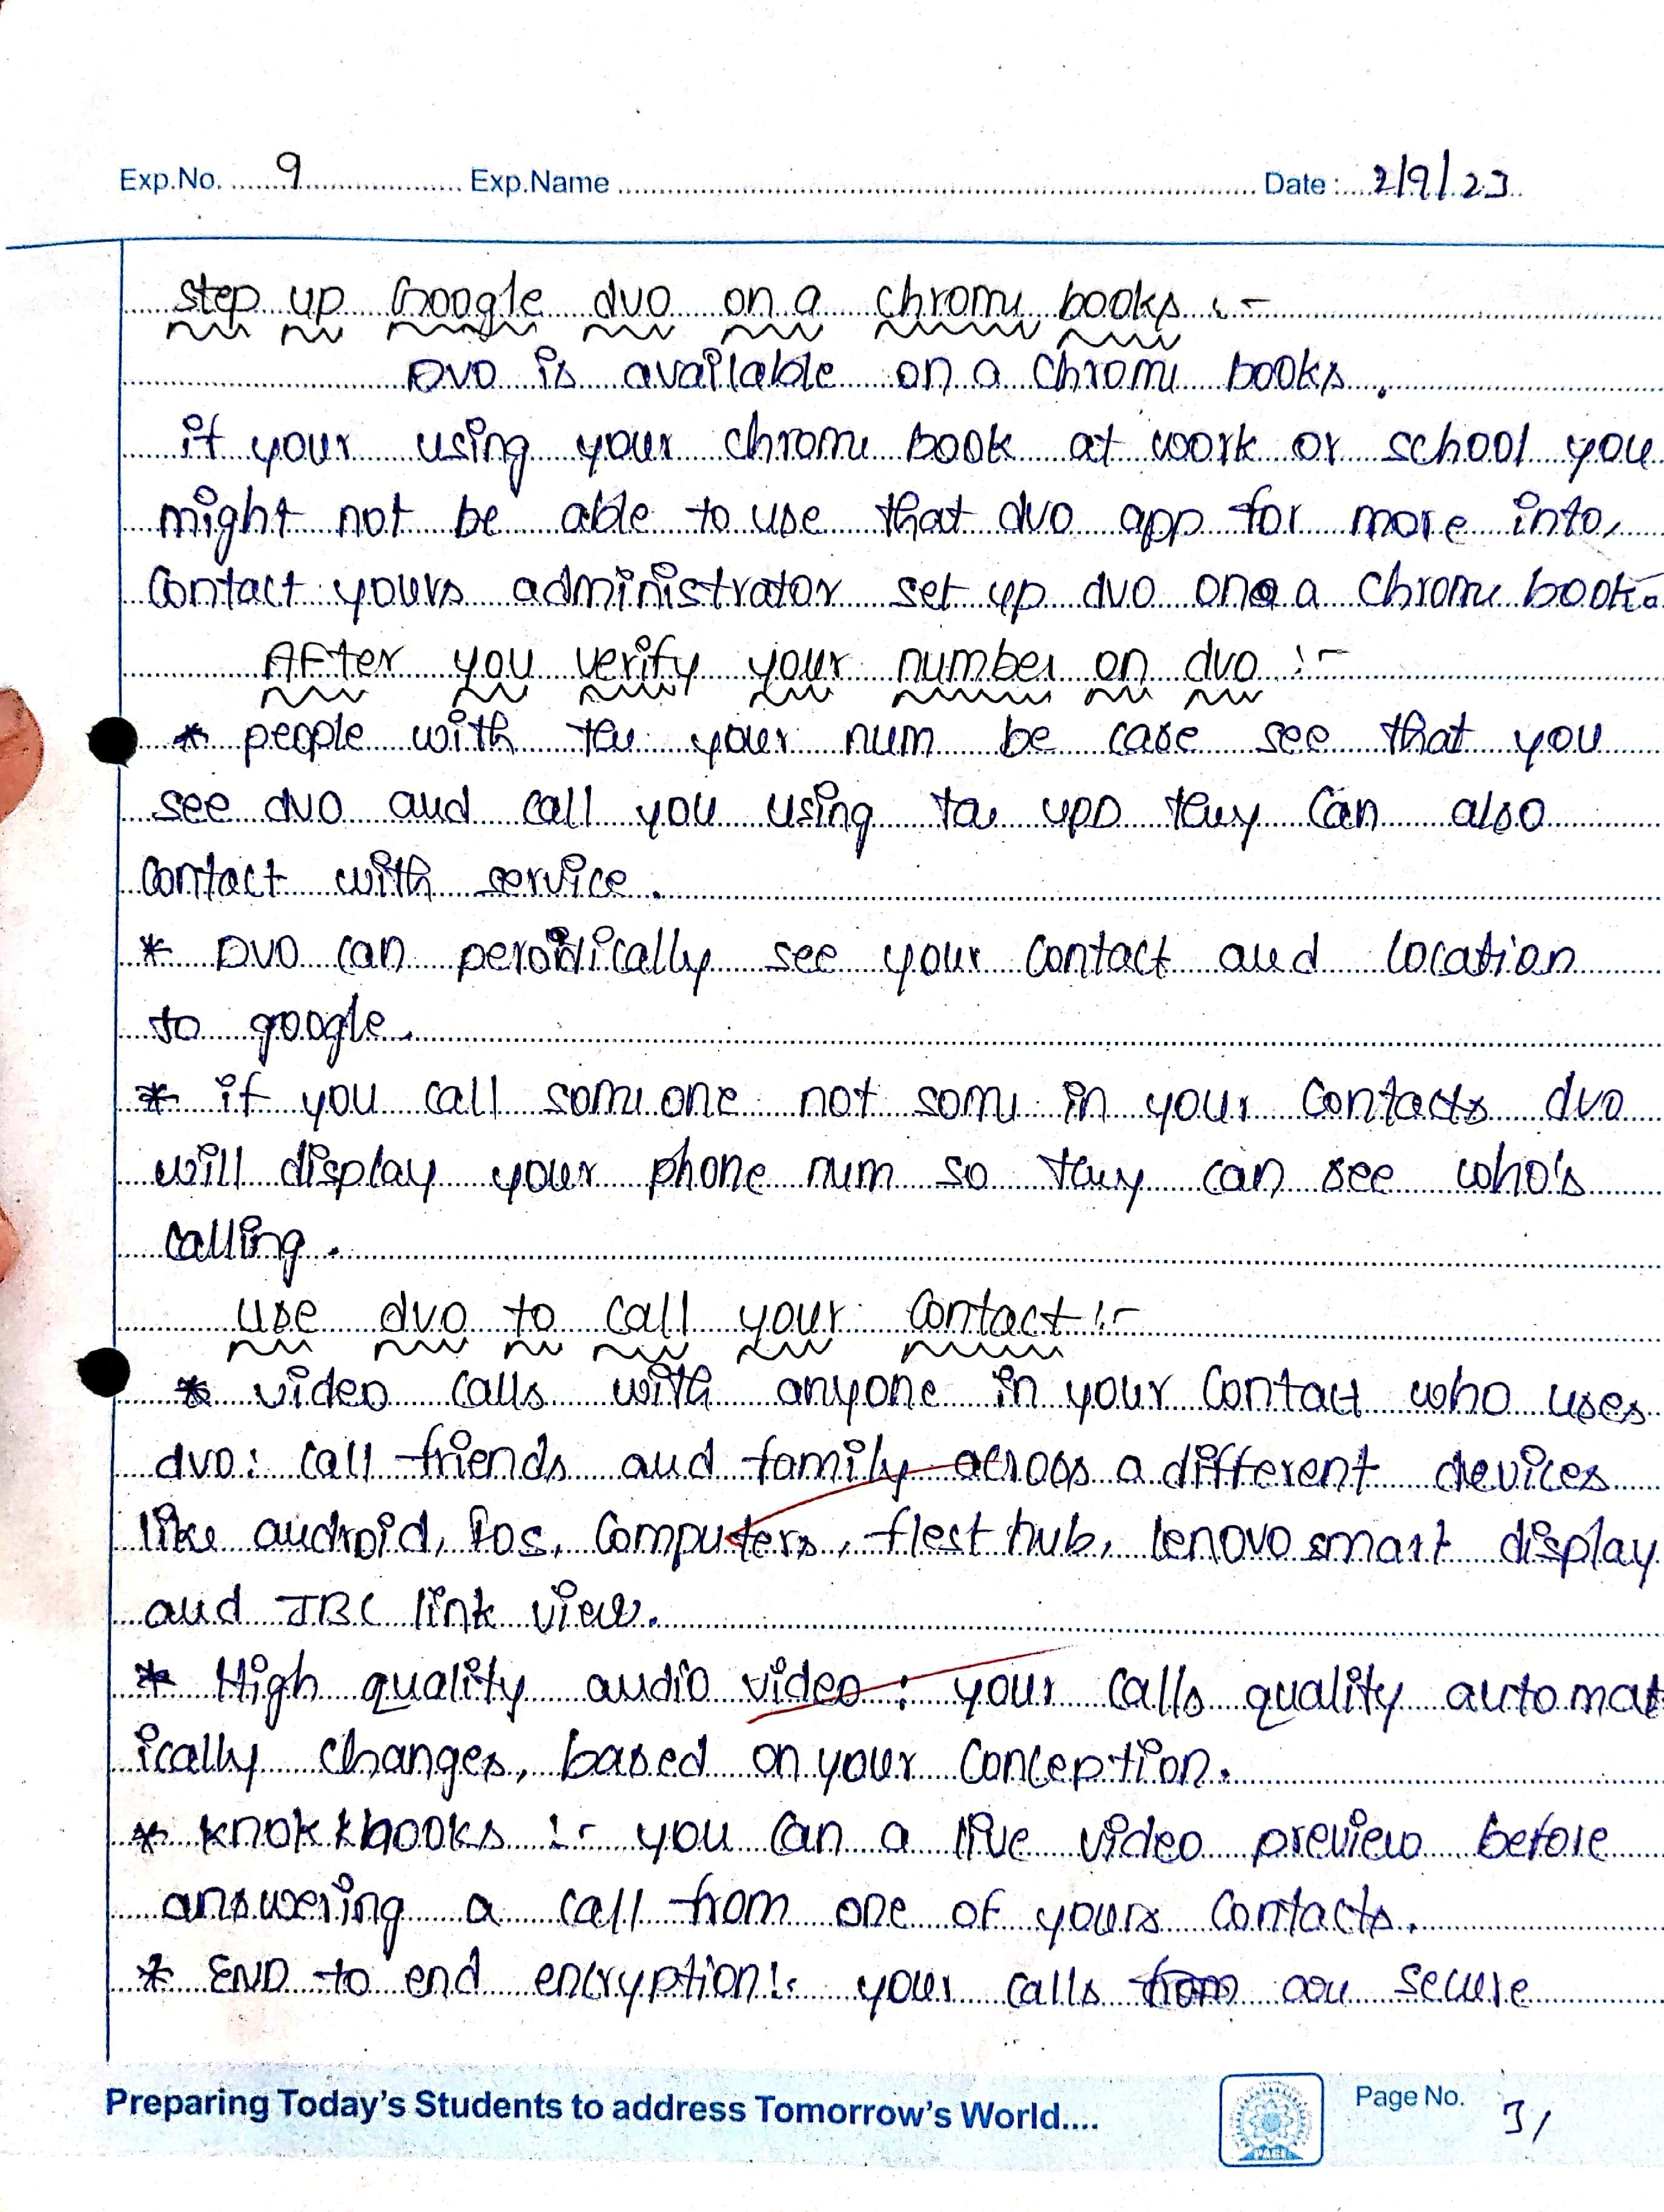 Exp.No. 9 Exp.Name Date : 2/9/23
step up Google duo on a chrome books :-
Duo is available on a chrome books.
if your using your chrome book at work or school you
might not be able to use that duo app for more info,
contact yours administrator set up duo on a chrome book.
AFter you verify your number on duo :-
* people with the your num be case see that you
see duo and call you using the upp they can also
contact with service.
* Duo can peroidically see your contact and location
to google.
* if you call some one not some in your contacts duo
will display your phone num so they can see who's
calling.
use duo to call your contact :-
* video calls with anyone in your contact who uses
duo: call friends and family across a different devices
like android, ios, computers, flest hub, lenovo smart display
and JBL link view.
* High quality audio video : your calls quality automat
ically changes, based on your conception.
* knok books :- you can a live video preview before
answering a call from one of yours contacts.
* END to end encryption :- your calls are secure
Preparing Today's Students to address Tomorrow's World....
PACE
Page No. 31